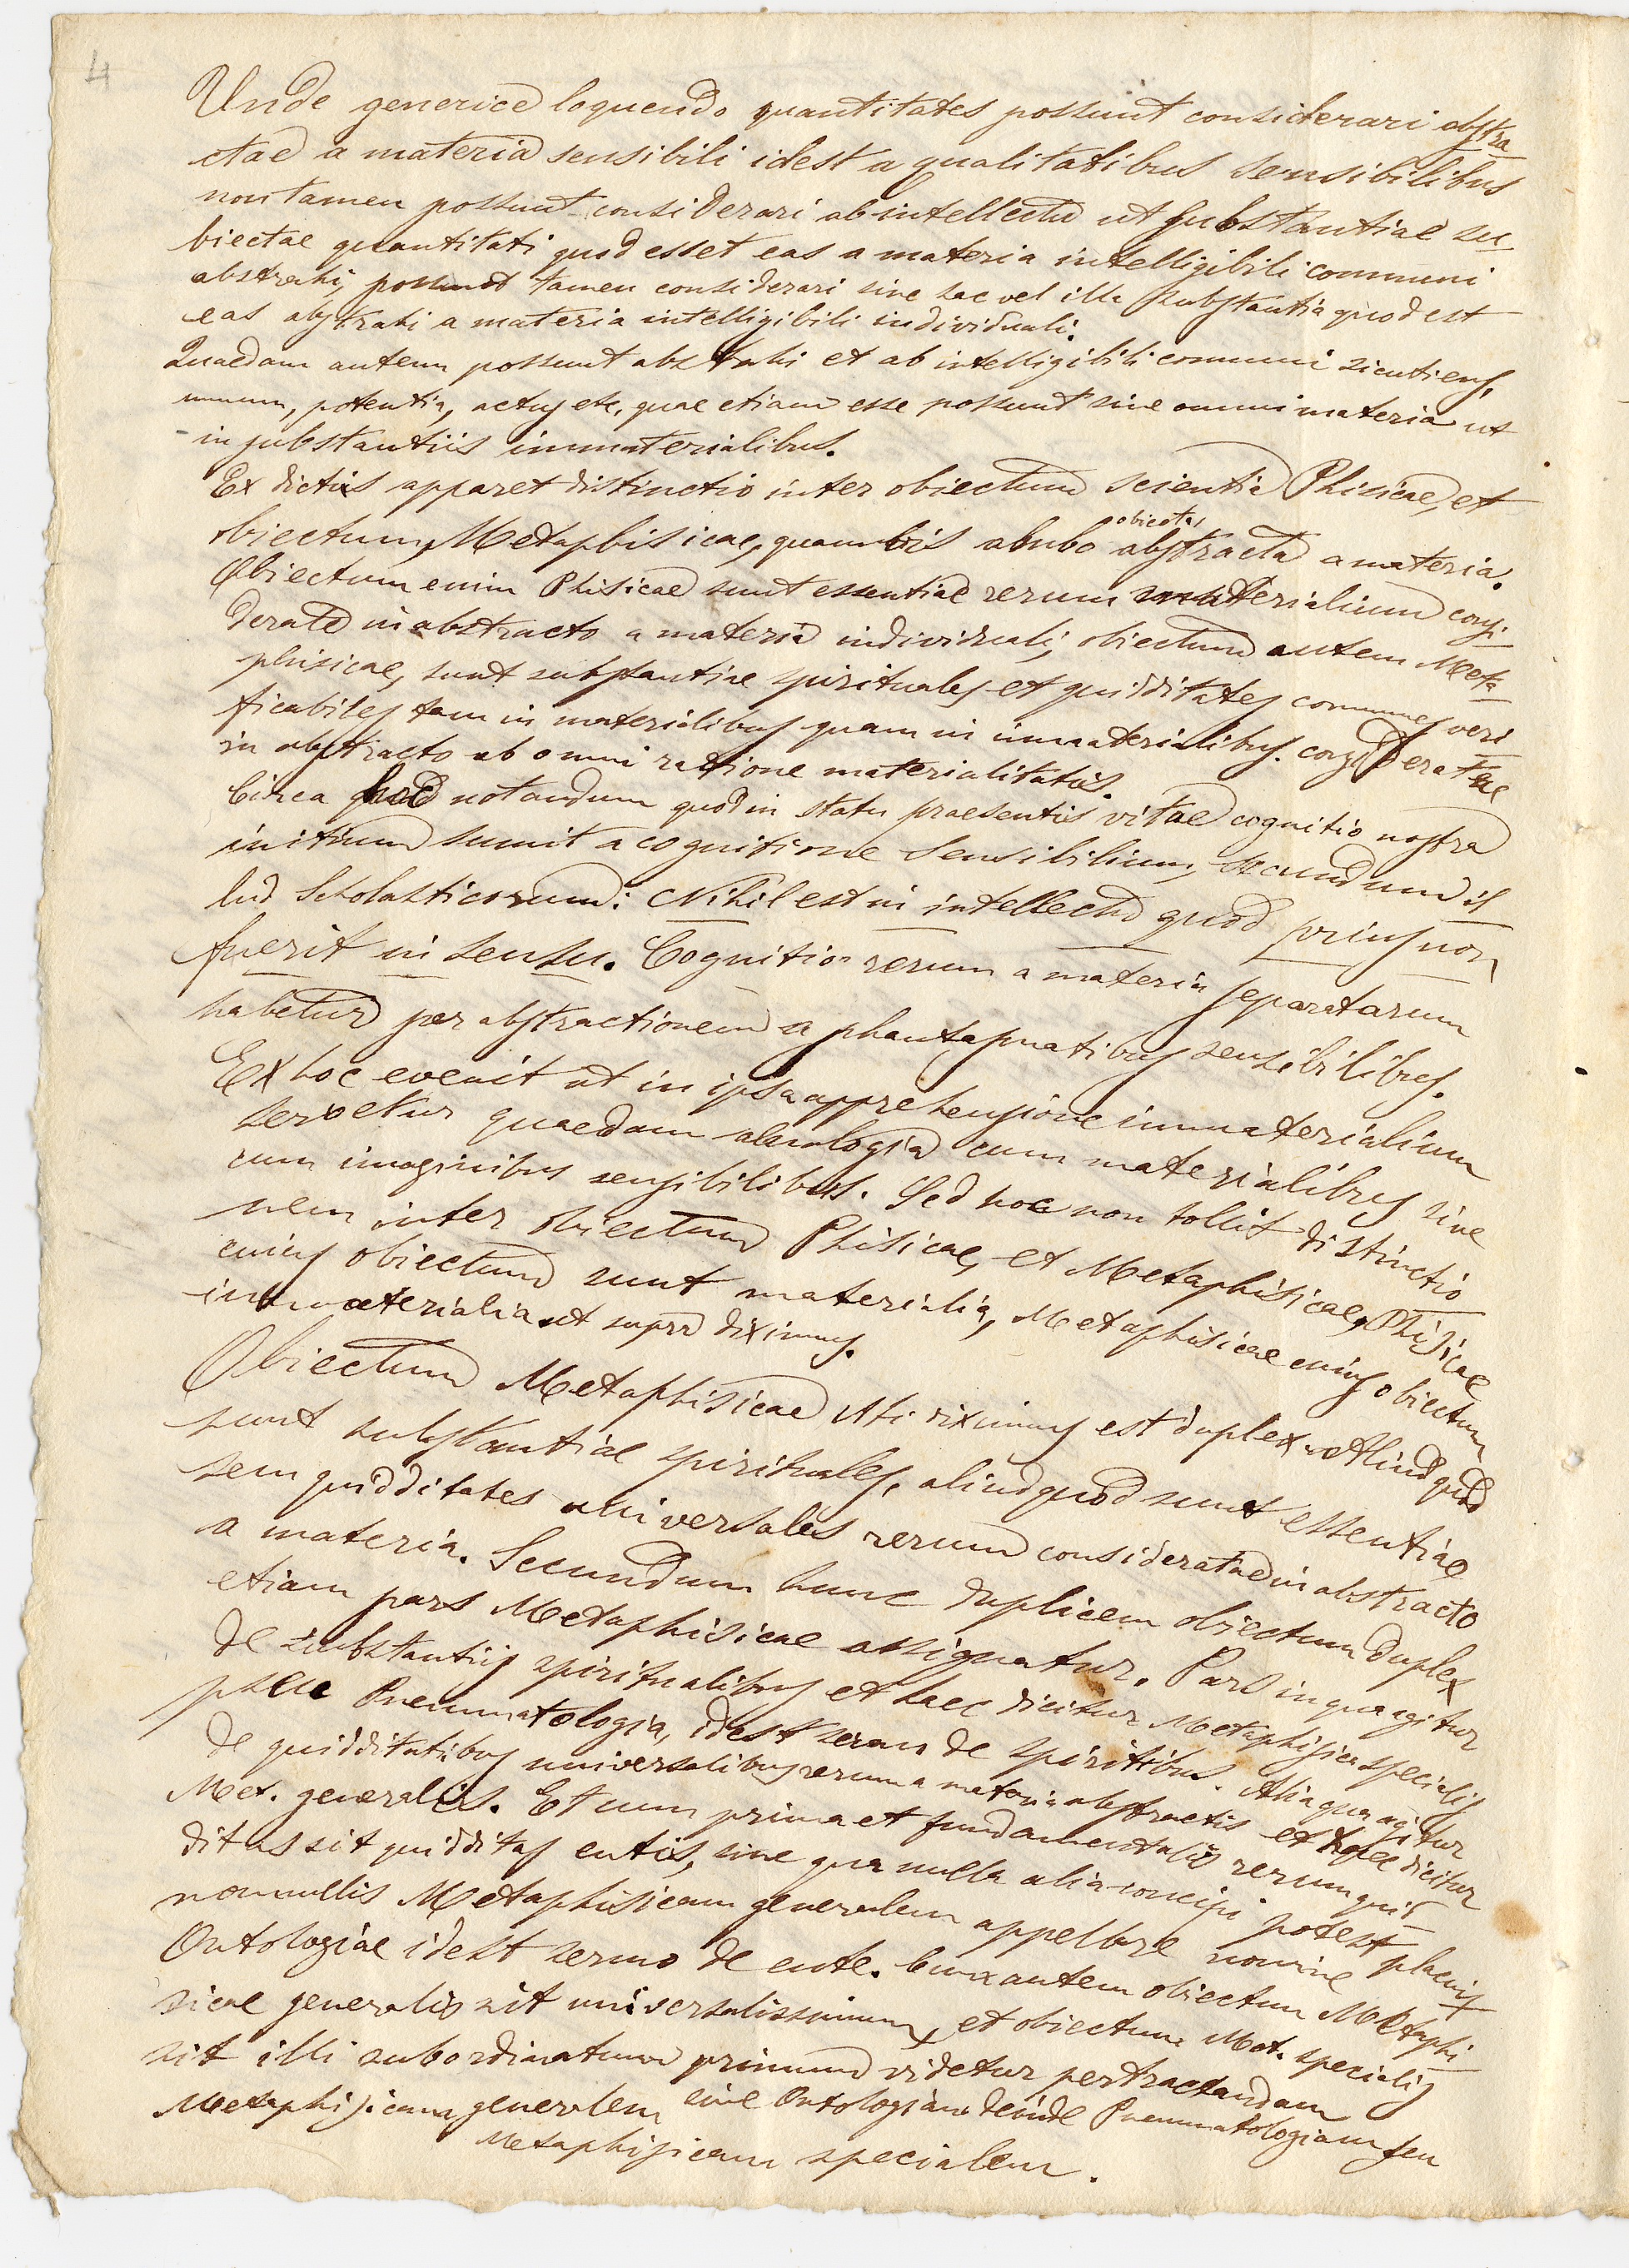 4
Unde generice loquendo quantitates possunt considerari abstra
ctae a materia sensibili idest a qualitatibus sensibilibus
non tamen possunt considerari ab intellectu ut substantiae su
biectae quantitati quod esset eas a materia intelligibili communi
abstrahi, possunt tamen considerari sine hac vel illa substantia quod est
eas abstrahi a materia intelligibili individuali.
Quaedam autem possunt abstrahi et ab intelligibili communi sicuti ens,
unum, potentia, actus etc. quae etiam esse possunt sine omni materia ut
in substantiis immaterialibus.
Ex dictis apparet distinctio inter obiectum scientia Phisicae, et
obiectum, Metaphisicae, quamvis ambo obiecta abstracta a materia.
Obiectum enim Phisicae sunt essentiae rerum materialium consi
derate in abstracto a materia individuali; obiectum autem Meta
phisicae, sunt substantiae spirituales et quidditates communes veri
ficabiles tam in materialibus quam in inmaterialibus. consideratae
in abstracto ab omni ratione materialitatis.
Circa hoc notandum quod in statu praesentis vitae cognitio nostra
initium sumit a cognitione sensibilium, secundum il
lud Scholasticorum: Nihil est in intellectu quod prius non
fuerit in sensu. Cognitio rerum a materia separatarum
habetur per abstractionem a phantasmatibus sensibilibus.
Ex hoc evenit ut in ipsa apprehensione immaterialium
servetur quaedam analogia cum materialibus sive
cum imaginibus sensibilibus. Sed hoc non tollit distinctio
nem inter obiectum Phisicae, et Metaphisicae, Phisicae
cuius obiectum sunt materialia, Metaphisicae cuius obiectum
inmaterialia ut supra diximus.
Obiectum Metaphisicae uti diximus est duplex. Aliud quod
sunt substantiae spirituales, aliud quod sunt essentiae
seu quidditates universales rerum consideratae in abstracto
a materia. Secundum hunc duplicem obiectum duplex
etiam pars Metaphisicae assignatur. Pars in qua agitur
de substantiis spiritualibus et haec dicitur Metaphisica specialis
seu Pneumatologia, idest sermo de spiritibus. Alia qua agitur
de quidditatibus universalibus rerum a materia abstractis et haec dicitur
Met. generalis. Et cum prima et fundamentalis rerum quid
ditas sit quidditas entis, sine qua nulla alia concipi potest placuit
nonnullis Metaphisicam generalem appellare nomine
Ontologiae idest sermo de ente. Cum autem obiectum Metaphi
sicae generalis sit universalissimum, et obiectum Met. specialis
sit illi subordinatum primum videtur pertractandam
Metaphisicam generalem sive Ontologiam deinde Pneumatologiam seu
Metaphisicam specialem.